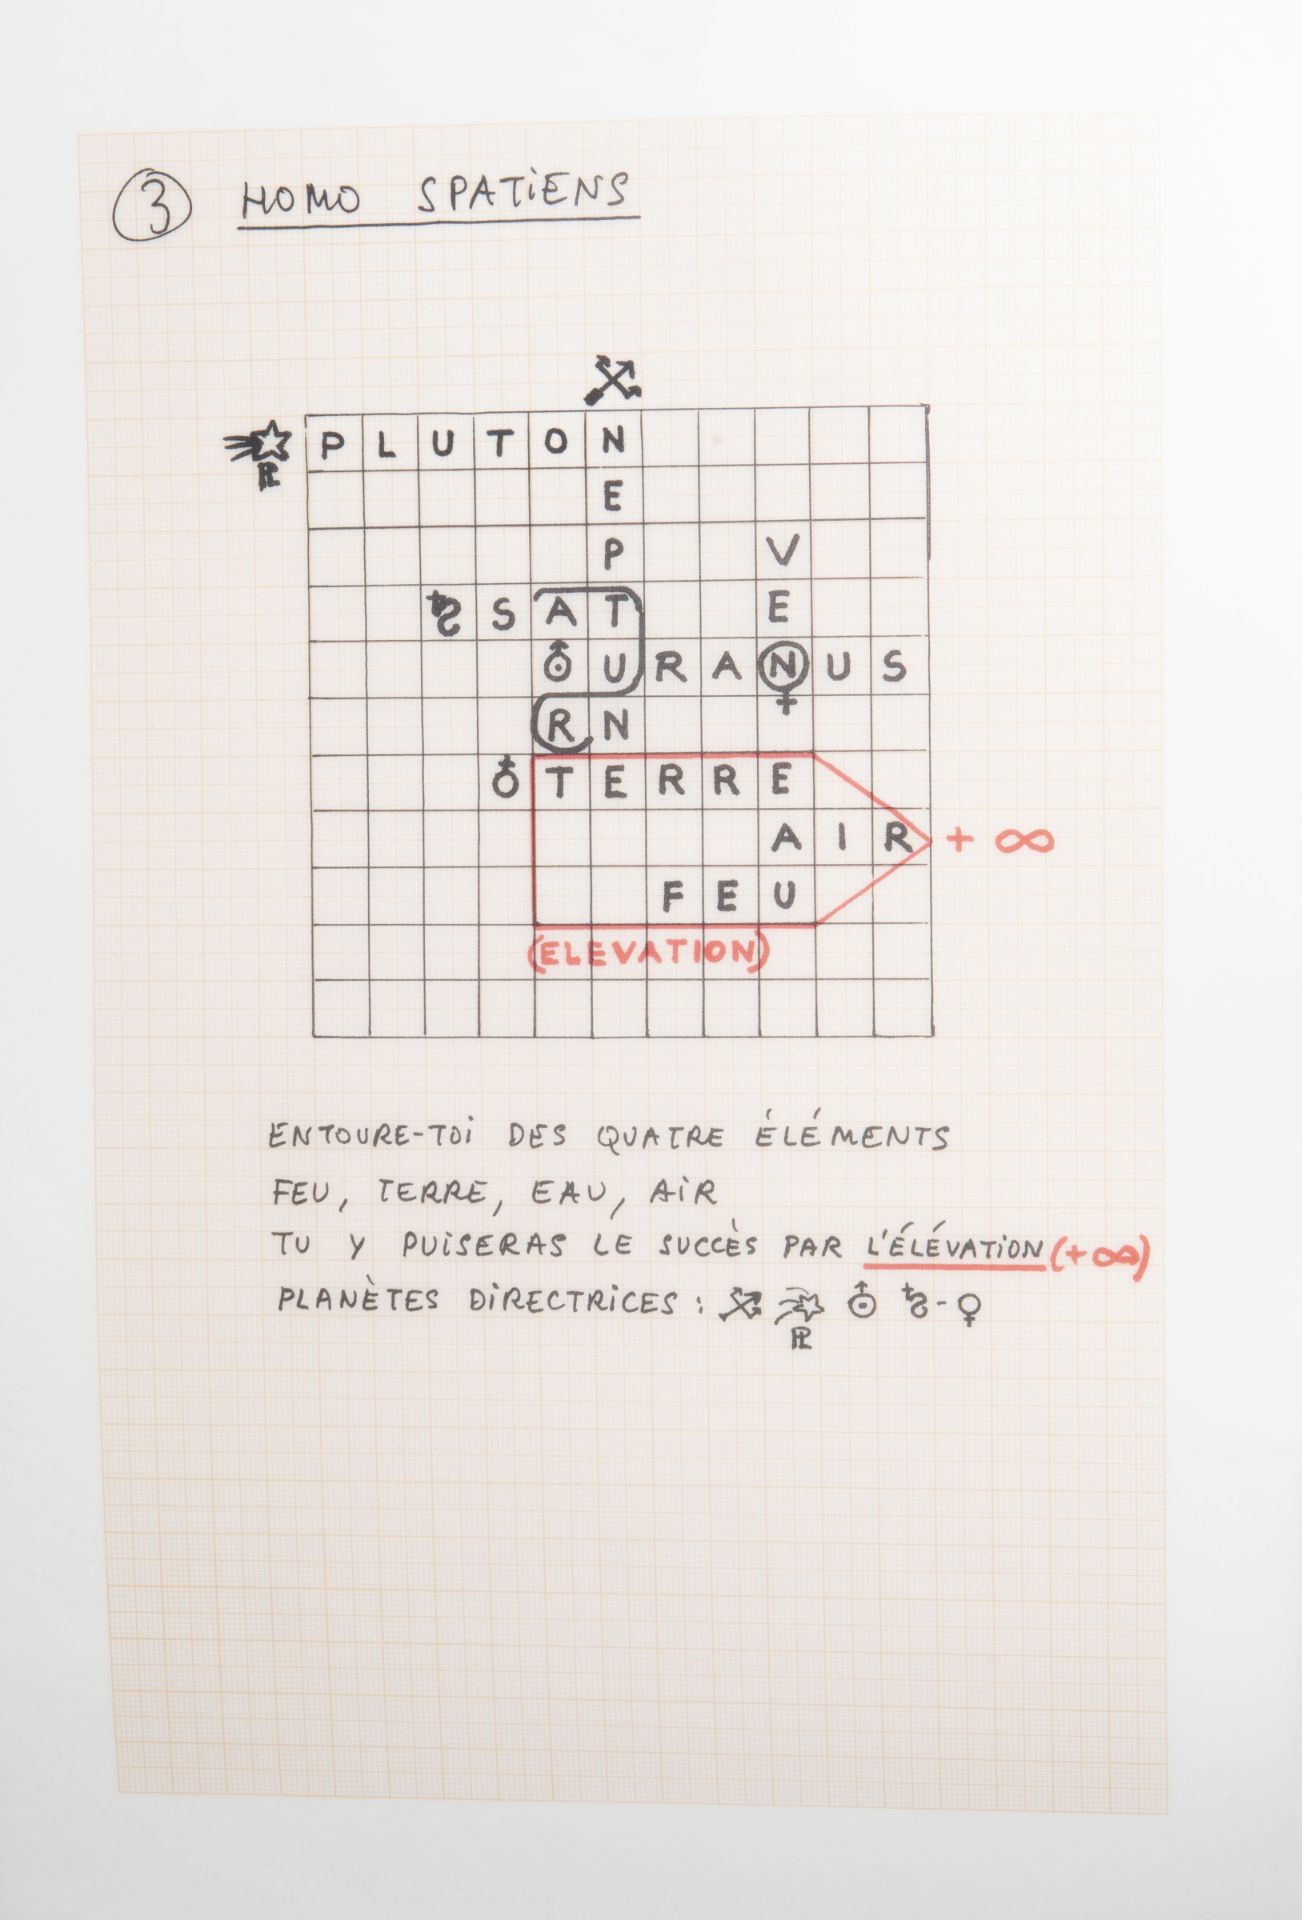 3 HOMO SPATiENS
PLUTON
E
P V
♄ S A T E
⛢ U R A N U S
R N
♁ T E R R E
A I R + ∞
F E U
(ELEVATION)
ENTOURE-TOi DES QUATRE ÉLÉMENTS
FEU, TERRE, EAU, AiR
TU Y PUiSERAS LE SUCCÈS PAR L'ÉLÉVATiON (+∞)
PLANÈTES DiRECTRiCES : ⛢ ♄ - ♀
PL